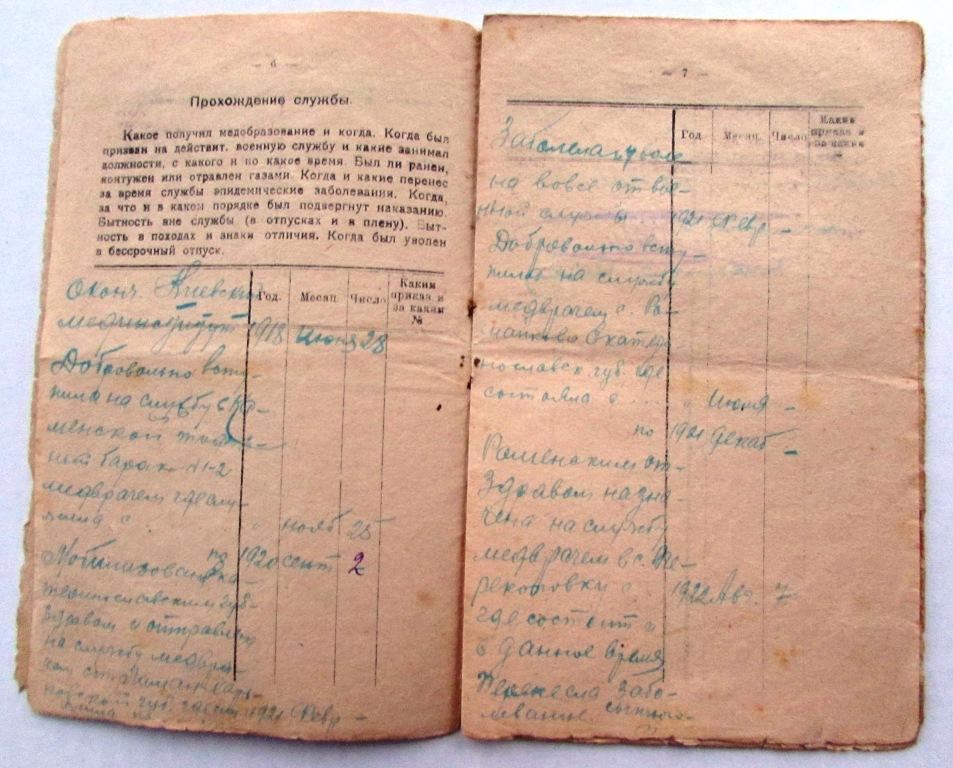 — 6 —
Прохождение службы.
Какое получил медобразование и когда. Когда был
призван на действит. военную службу и какие занимал
должности, с какого и по какое время. Был ли ранен,
контужен или отравлен газами. Когда и какие перенес
за время службы эпидемические заболевания. Когда,
за что и в каком порядке был подвергнут наказанию.
Бытность вне службы (в отпусках и в плену). Быт-
ность в походах и знаки отличия. Когда был уволен
в бессрочный отпуск.
Год. Месяц. Число. Каким приказ и за каким №
Оконч. Киевский
мединститут 1918 Июня 28
Добровольно всту-
пила на службу в
менской
нот барак № 1-2
медврачем где слу-
жила с " нояб 25
по 1920 сент 2
Мобилизована Ека-
теринославским губ-
здравом и отправлена
на службу медвра-
чем ст.
губ. где 1921 Февр -
— 7 —
Год. Месяц. Число. Каким приказ и за каким №
Заболела
на вовсе от вое-
нной службы 1921 Февр -
Добровольно всту-
пила на службу
медврачем с. Ро-
маново Екатери-
нославск губ. где
состояла с .... " Июня -
по 1921 декаб -
Роменским от-
Здравом назна-
чена на службу
медврачем в с. Пе-
рекоповки с 1922 Авг. 7
где состоит и
в данное время
Перенесла забо-
левание сыпного-